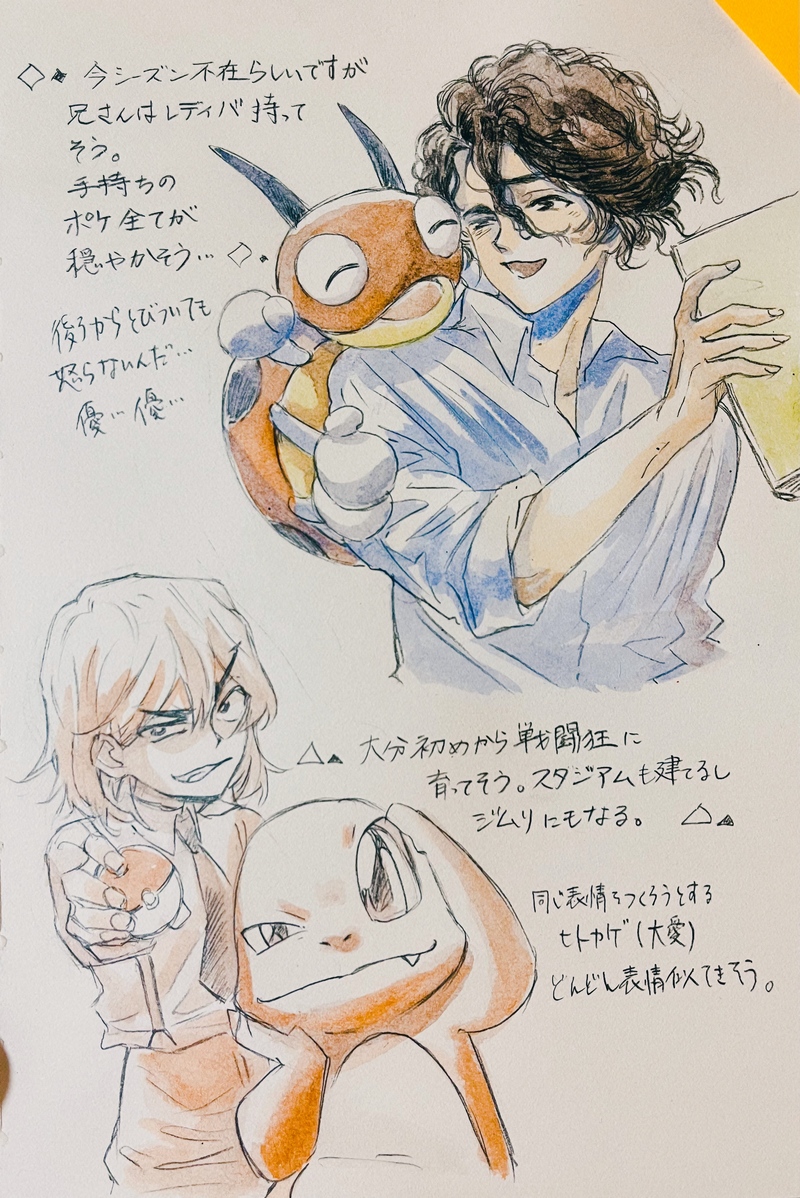 今シーズン不在らしいですが
兄さんはレディバ持って
そう。
手持ちの
ポケ全てが
穏やかそう…
後ろからとびついても
怒らないんだ…
優… 優…
大分初めから戦闘狂に
育ってそう。スタジアムも建てるし
ジムリにもなる。
同じ表情をつくろうとする
ヒトカゲ(大愛)
どんどん表情似てきそう。